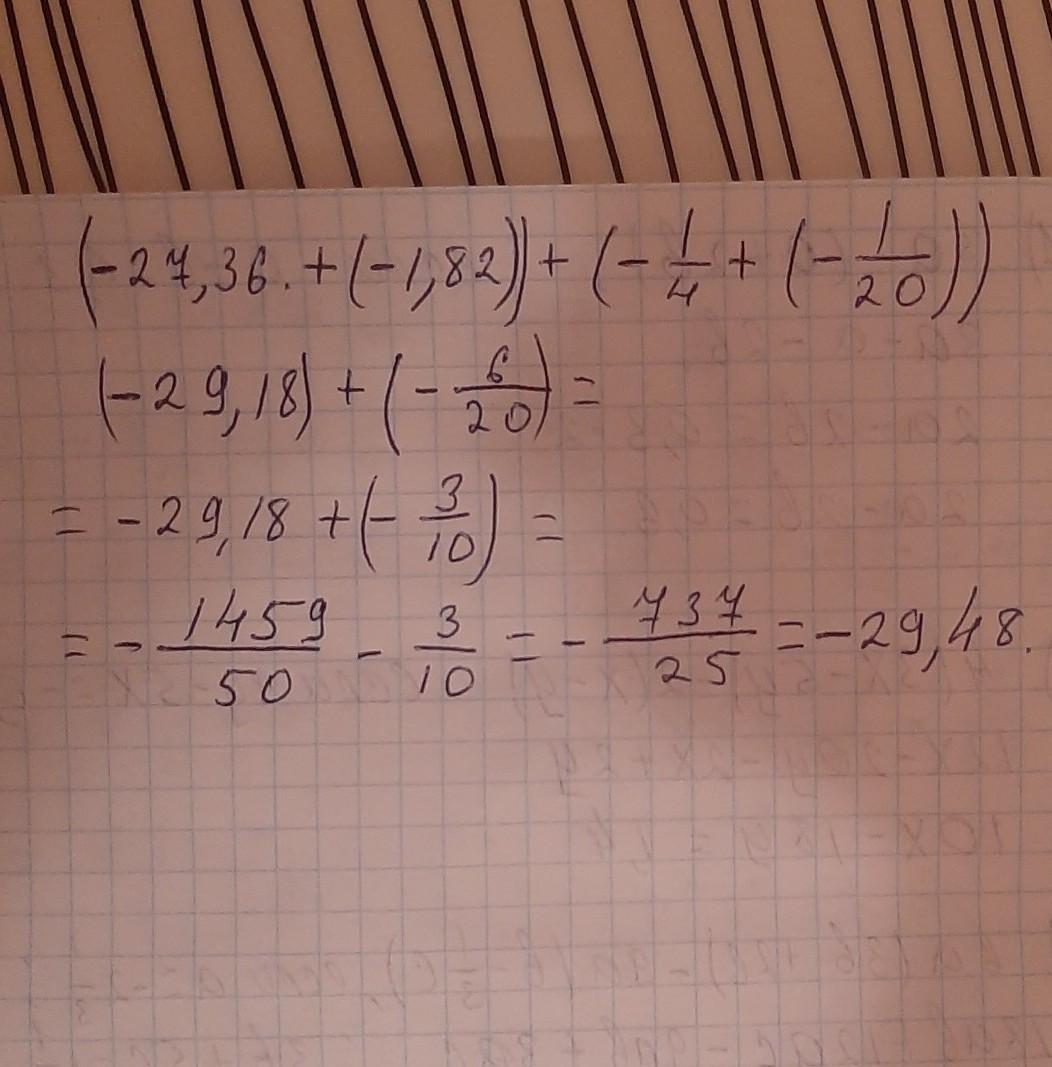 (-27,36. + (-1,82)) + (- 1/4 + (- 1/20))
(-29,18) + (- 6/20) =
= -29,18 + (- 3/10) =
= - 1459/50 - 3/10 = - 737/25 = -29,48.